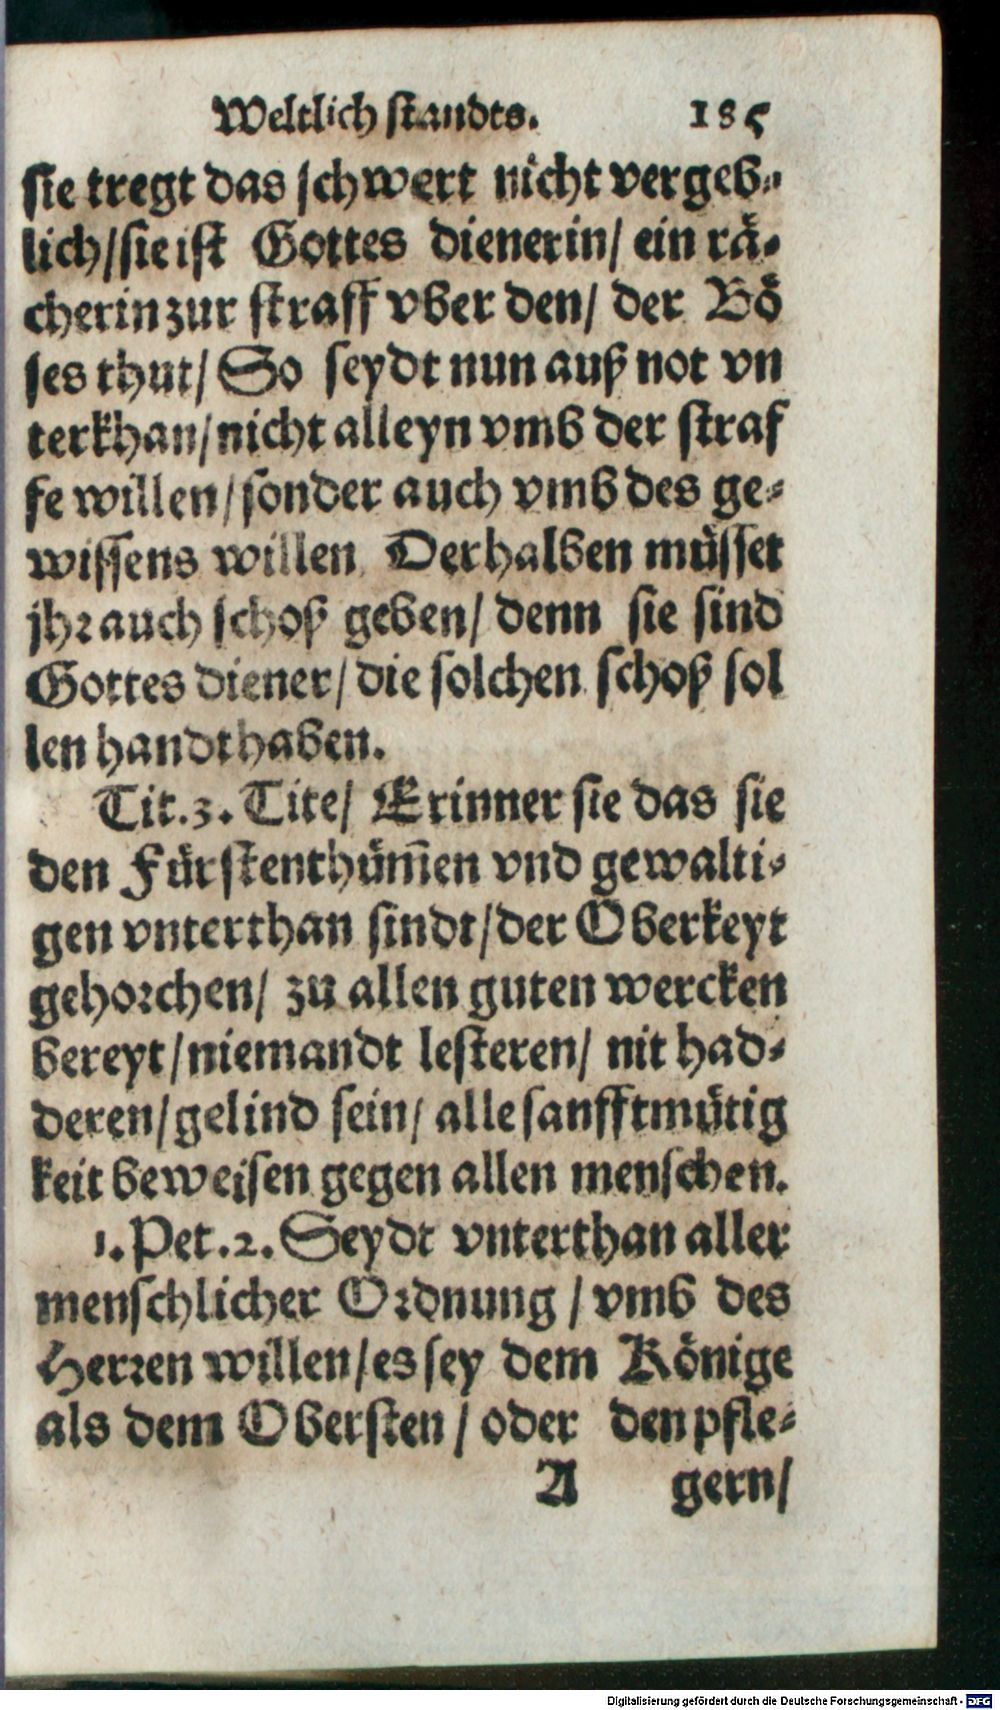 Weltlich standts. 185
sie tregt das schwert nicht vergeb-
lich/sie ist Gottes dienerin/ ein rä-
cherin zur straff vber den/ der Bö
ses thut/ So seydt nun auß not vn
terkhan/nicht alleyn vmb der straf
fe willen/sonder auch vmb des ge-
wissens willen. Derhalben müsset
jhr auch schoß geben/ denn sie sind
Gottes diener/die solchen schoß sol
len handthaben.
Tit.3. Tite/ Erinner sie das sie
den Fürstenthüm̃en vnd gewalti-
gen vnterthan sindt/der Oberkeyt
gehorchen/ zu allen guten wercken
bereyt/niemandt lesteren/ nit had-
deren/gelind sein/ alle sanfftmütig
keit beweisen gegen allen menschen.
1. Pet.2. Seydt vnterthan aller
menschlicher Ordnung/vmb des
Herren willen/es sey dem Könige
als dem Obersten/oder den pfle-
A gern/
Digitalisierung gefördert durch die Deutsche Forschungsgemeinschaft - DFG